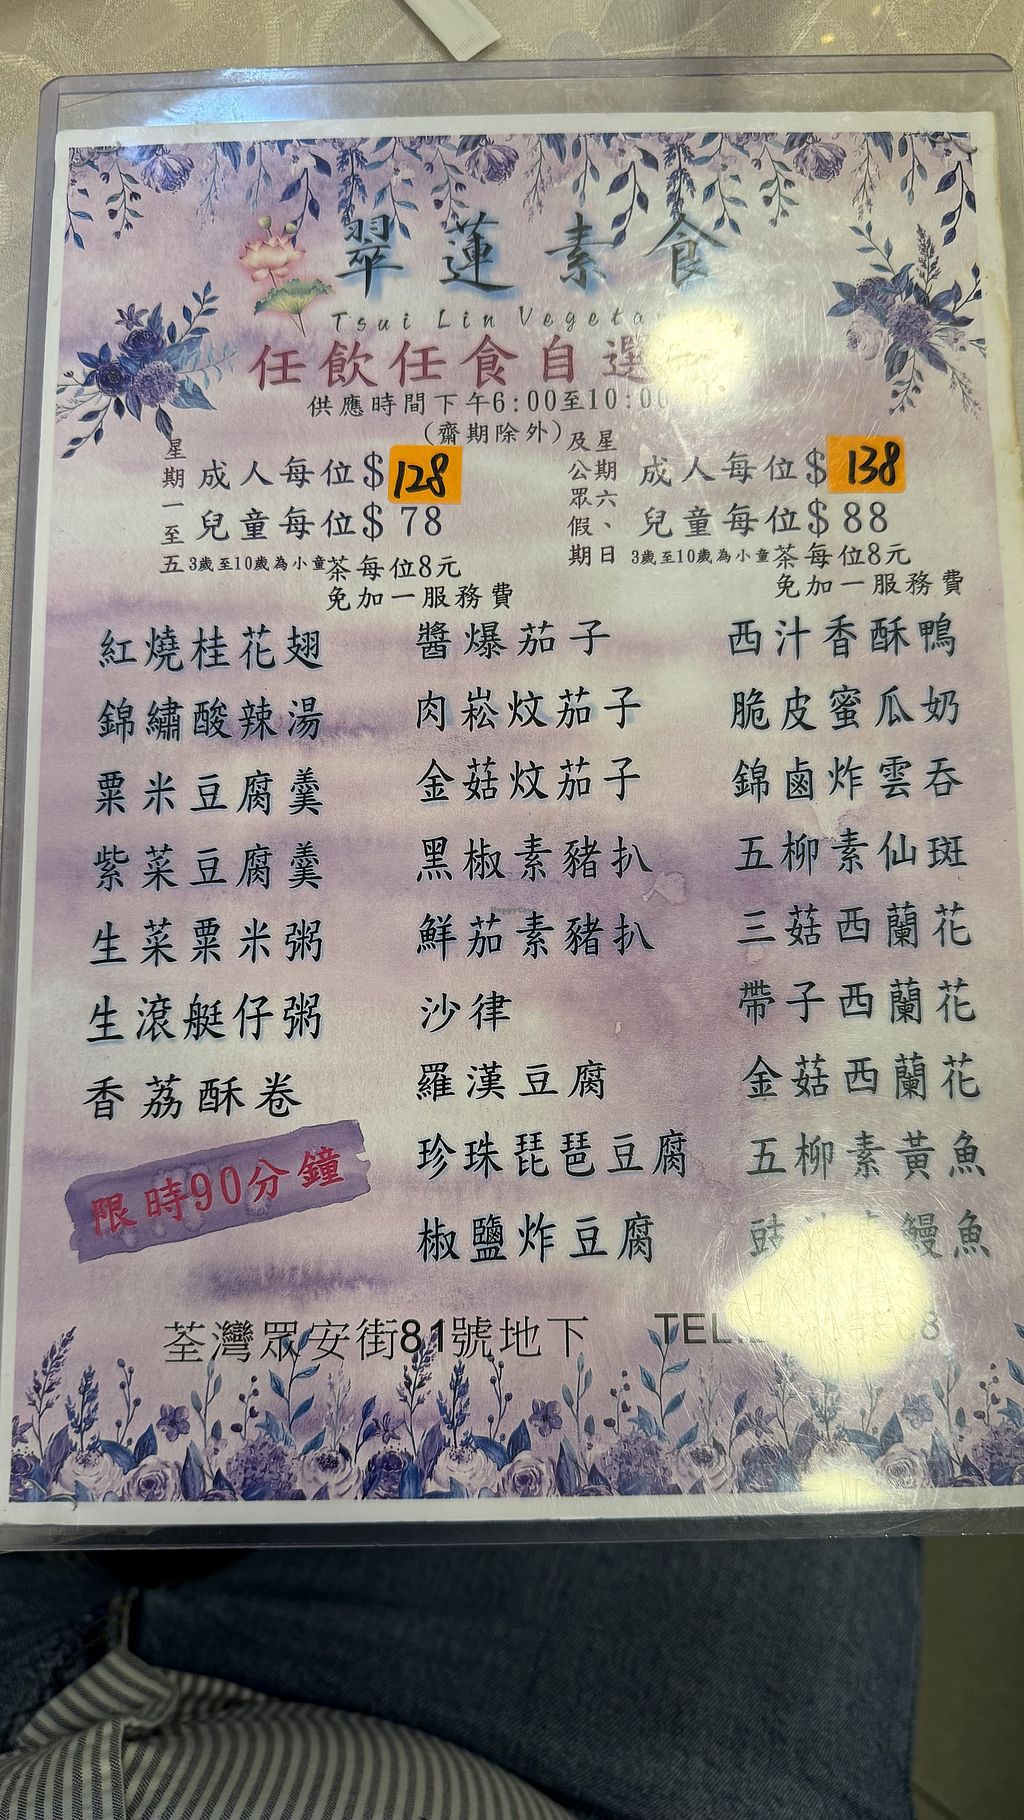 翠蓮素食
Tsui Lin
任飲任食自選
供應時間下午6:00至10:00
(齋期除外)
星期一至五
成人每位$128
兒童每位$78
3歲至10歲為小童
茶每位8元
免加一服務費
星期六、日
及公眾假期
成人每位$138
兒童每位$88
3歲至10歲為小童
茶每位8元
免加一服務費
紅燒桂花翅
錦繡酸辣湯
粟米豆腐羹
紫菜豆腐羹
生菜粟米粥
生滾艇仔粥
香荔酥卷
限時90分鐘
醬爆茄子
肉崧炆茄子
金菇炆茄子
黑椒素豬扒
鮮茄素豬扒
沙律
羅漢豆腐
珍珠琵琶豆腐
椒鹽炸豆腐
西汁香酥鴨
脆皮蜜瓜奶
錦鹵炸雲吞
五柳素仙斑
三菇西蘭花
帶子西蘭花
金菇西蘭花
五柳素黃魚
豉鰻魚
荃灣眾安街81號地下
TEL:
HappyCow